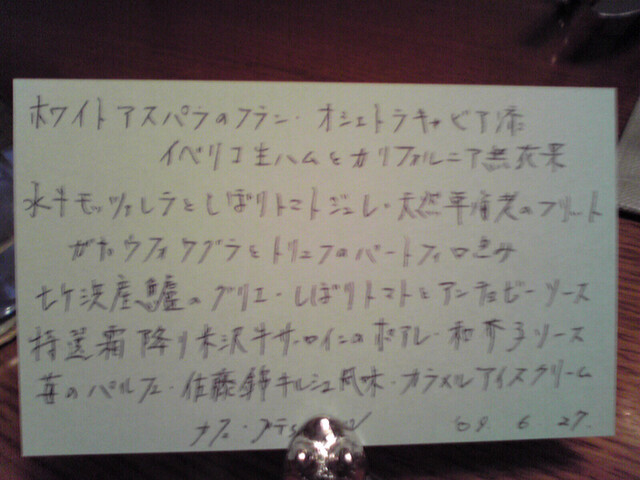 ホワイトアスパラのフラン・オシェトラキャビア添
イベリコ生ハムとカリフォルニア無花果
水牛モッツァレラとしぼりトマトジュレ・天然車海老のフリット
ガトーフォアグラとトリュフのパートフィロ包み
七ケ浜産鱸のグリエ・しぼりトマトとアンチョビーソース
特選霜降り米沢牛サーロインのポアレ・和芥子ソース
苺のパルフェ・佐藤錦キルシュ風味・カラメルアイスクリーム
カフェ・プティ
'09. 6. 27.